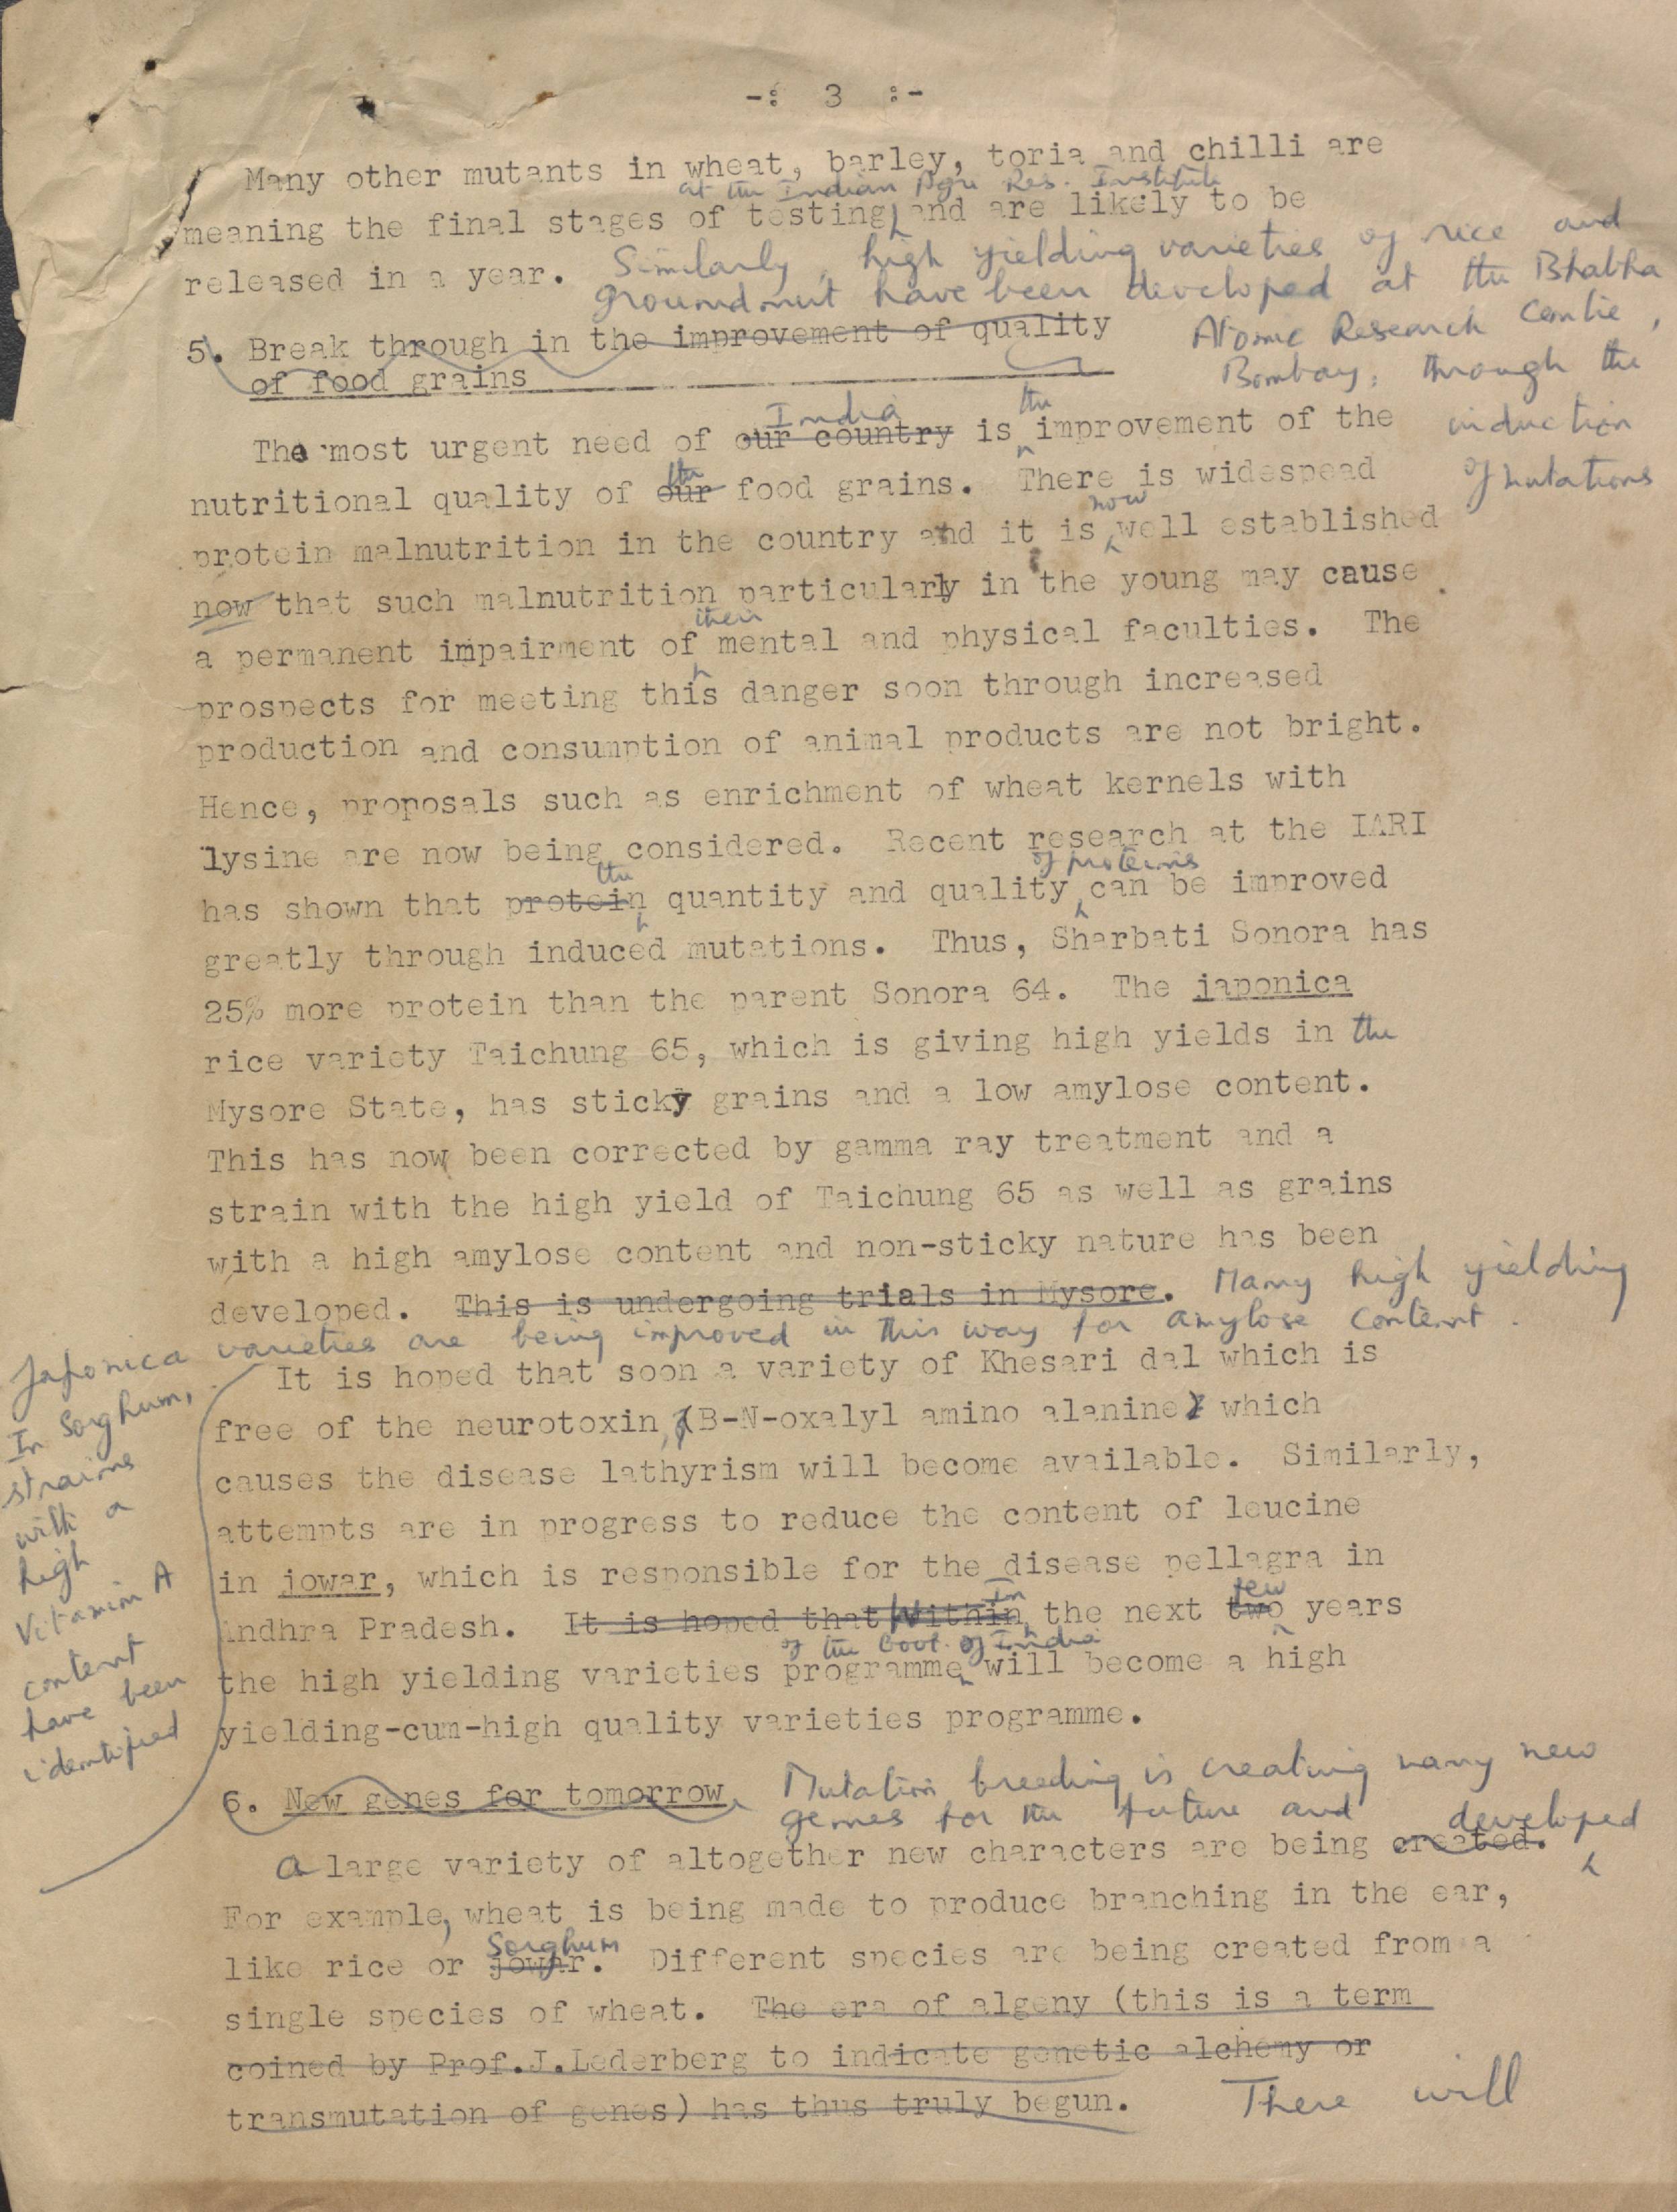 -: 3 :-
Many other mutants in wheat, barley, toria and chilli are
at the Indian Agri Res. Institute
meaning the final stages of testing and are likely to be
released in a year. Similarly, high yielding varieties of rice and
groundnut have been developed at the Bhabha
Atomic Research Centre,
Bombay, through the
induction
of mutations
5. Break through in the improvement of quality
of food grains
India the
The most urgent need of our country is improvement of the
the
nutritional quality of our food grains. There is widespead
now
protein malnutrition in the country and it is well established
now that such malnutrition particularly in the young may cause
their
a permanent impairment of mental and physical faculties. The
prospects for meeting this danger soon through increased
production and consumption of animal products are not bright.
Hence, proposals such as enrichment of wheat kernels with
lysine are now being considered. Recent research at the IARI
the of proteins
has shown that protein quantity and quality can be improved
greatly through induced mutations. Thus, Sharbati Sonora has
25% more protein than the parent Sonora 64. The japonica
rice variety Taichung 65, which is giving high yields in the
Mysore State, has sticky grains and a low amylose content.
This has now been corrected by gamma ray treatment and a
strain with the high yield of Taichung 65 as well as grains
with a high amylose content and non-sticky nature has been
developed. This is undergoing trials in Mysore. Many high yielding
Japonica varieties are being improved in this way for amylose content.
In Sorghum,
strains
with a
high
Vitamin A
content
have been
identified
It is hoped that soon a variety of Khesari dal which is
free of the neurotoxin, (B-N-oxalyl amino alanine) which
causes the disease lathyrism will become available. Similarly,
attempts are in progress to reduce the content of leucine
in jowar, which is responsible for the disease pellagra in
In few
Andhra Pradesh. It is hoped that Within the next two years
of the Govt. of India
the high yielding varieties programme will become a high
yielding-cum-high quality varieties programme.
6. New genes for tomorrow. Mutation breeding is creating many new
genes for the future and developed
a large variety of altogether new characters are being created.
For example, wheat is being made to produce branching in the ear,
Sorghum
like rice or jowar. Different species are being created from a
single species of wheat. The era of algeny (this is a term
coined by Prof.J.Lederberg to indicate genetic alchemy or
transmutation of genes) has thus truly begun. There will